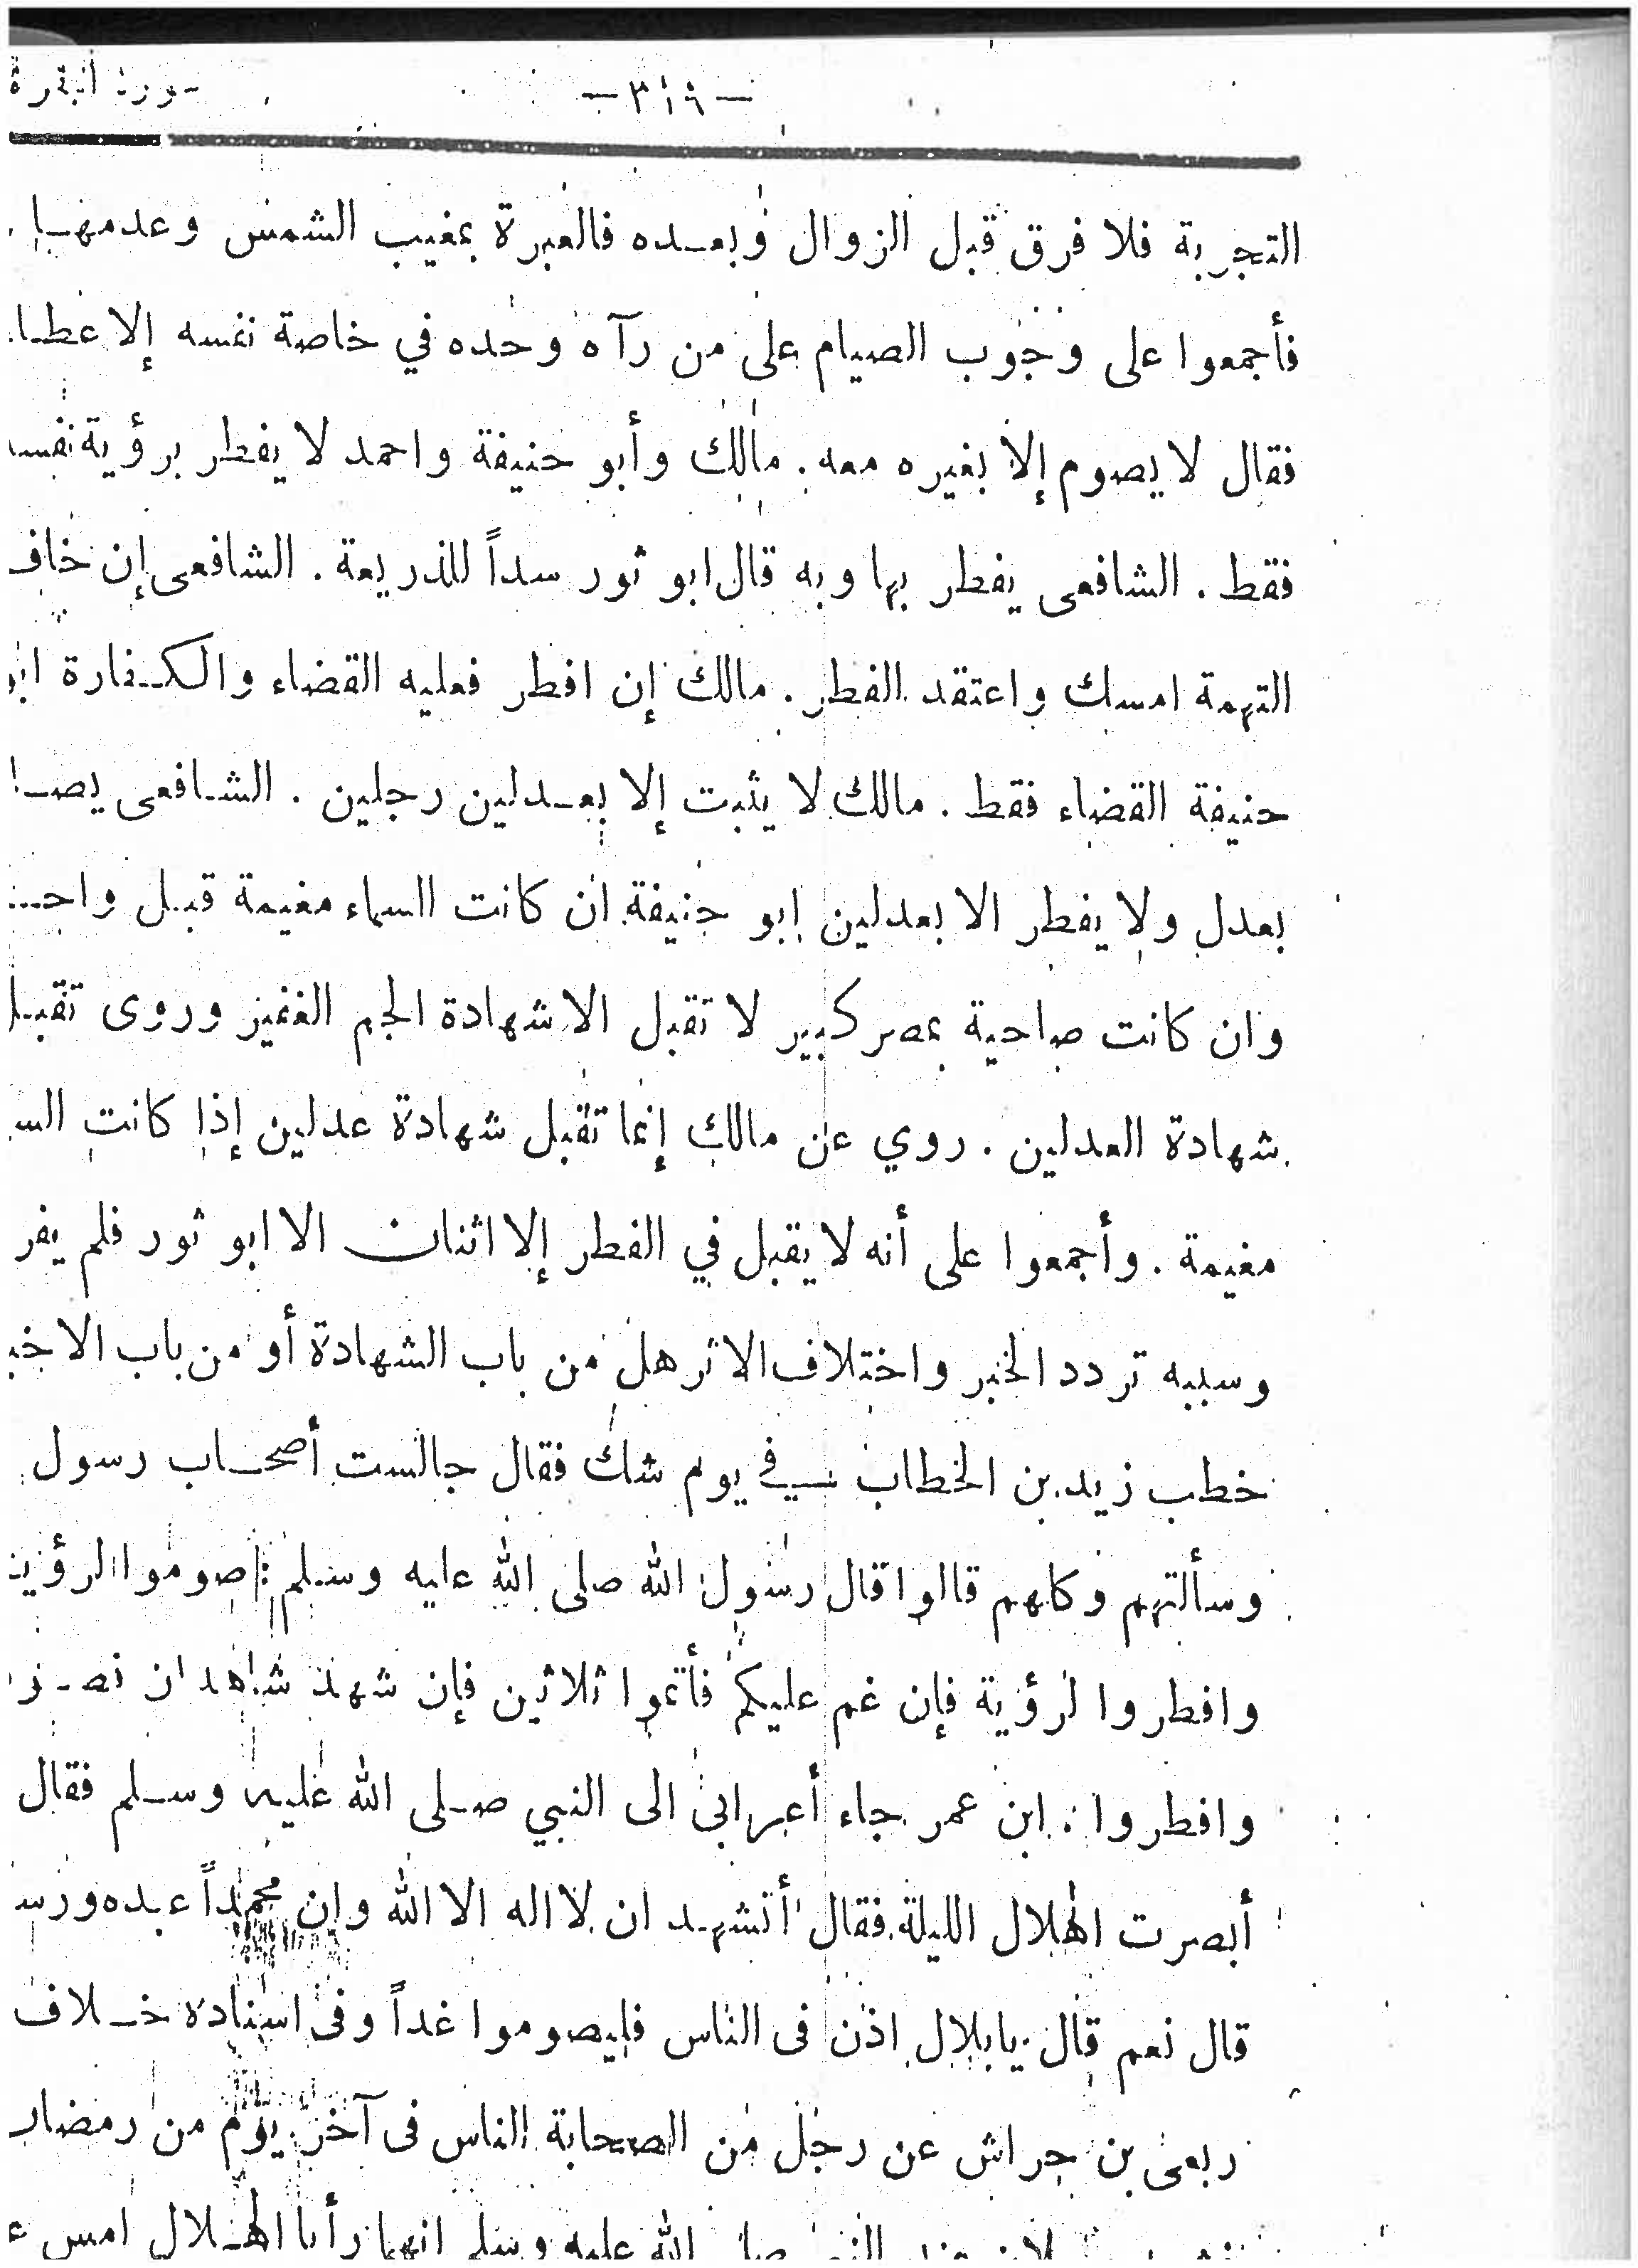 سورة البقرة
— ٣١٩ —
التجربة فلا فرق قبل الزوال وبعده فالعبرة بمغيب الشمس وعدمها
فأجمعوا على وجوب الصيام على من رآه وحده في خاصة نفسه إلا عطا
فقال لا يصوم إلا بغيره معه . مالك وأبو حنيفة واحمد لا يفطر برؤية نفسه
فقط . الشافعى يفطر بها وبه قال ابو ثور سداً للذريعة . الشافعى إن خاف
التهمة امسك واعتقد الفطر . مالك إن افطر فعليه القضاء والكفارة ابو
حنيفة القضاء فقط . مالك لا يثبت إلا بعدلين رجلين . الشافعى يصا
بعدل ولا يفطر الا بعدلين ابو حنيفة ان كانت السماء مغيمة قبل واحد
وان كانت صاحية بمصر كبير لا تقبل الا شهادة الجم الغفير وروى تقبل
شهادة العدلين . روي عن مالك إنما تقبل شهادة عدلين إذا كانت السـ
مغيمة . وأجمعوا على أنه لا يقبل في الفطر إلا اثنان الا ابو ثور فلم يفر
وسببه تردد الخبر واختلاف الاثر هل من باب الشهادة أو من باب الاخبـ
خطب زيد بن الخطاب في يوم شك فقال جالست أصحاب رسول
وسألتهم وكلهم قالوا قال رسول الله صلى الله عليه وسلم : صوموا لرؤيته
وافطروا لرؤية فإن غم عليكم فأتموا ثلاثين فإن شهد شاهدان فصو
وافطروا : ابن عمر جاء أعرابى الى النبي صلى الله عليه وسلم فقال
أبصرت الهلال الليلة فقال أتشهد ان لا اله الا الله وان محمداً عبده ورسـ
قال نعم قال يابلال اذن فى الناس فليصوموا غداً وفى اسناده خلاف
ربعى بن حراش عن رجل من الصحابة الناس فى آخر يوم من رمضان
الله عليه وسلم انهما رأيا الهلال امس